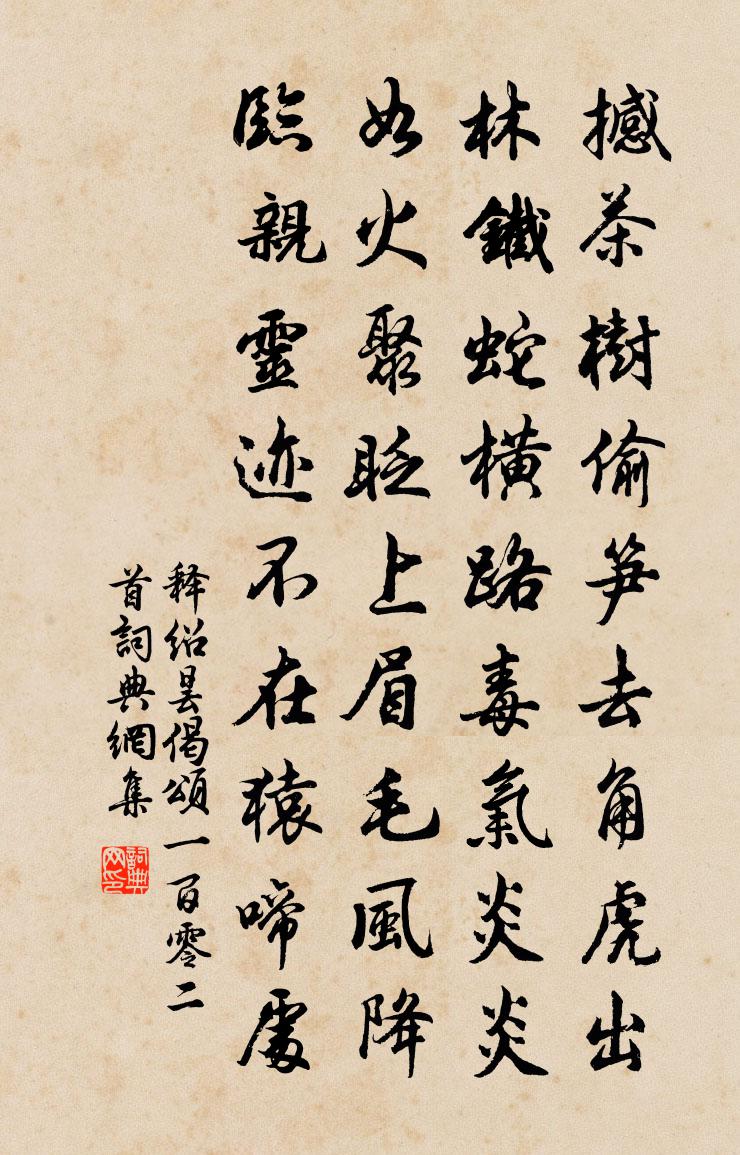 撼茶樹偷笋去角虎出
林鐵蛇橫路毒氣炎炎
如火聚眨上眉毛風降
臨親靈迹不在猿啼處
释绍昙偈頌一百零二
首詞典網集
詞典网印